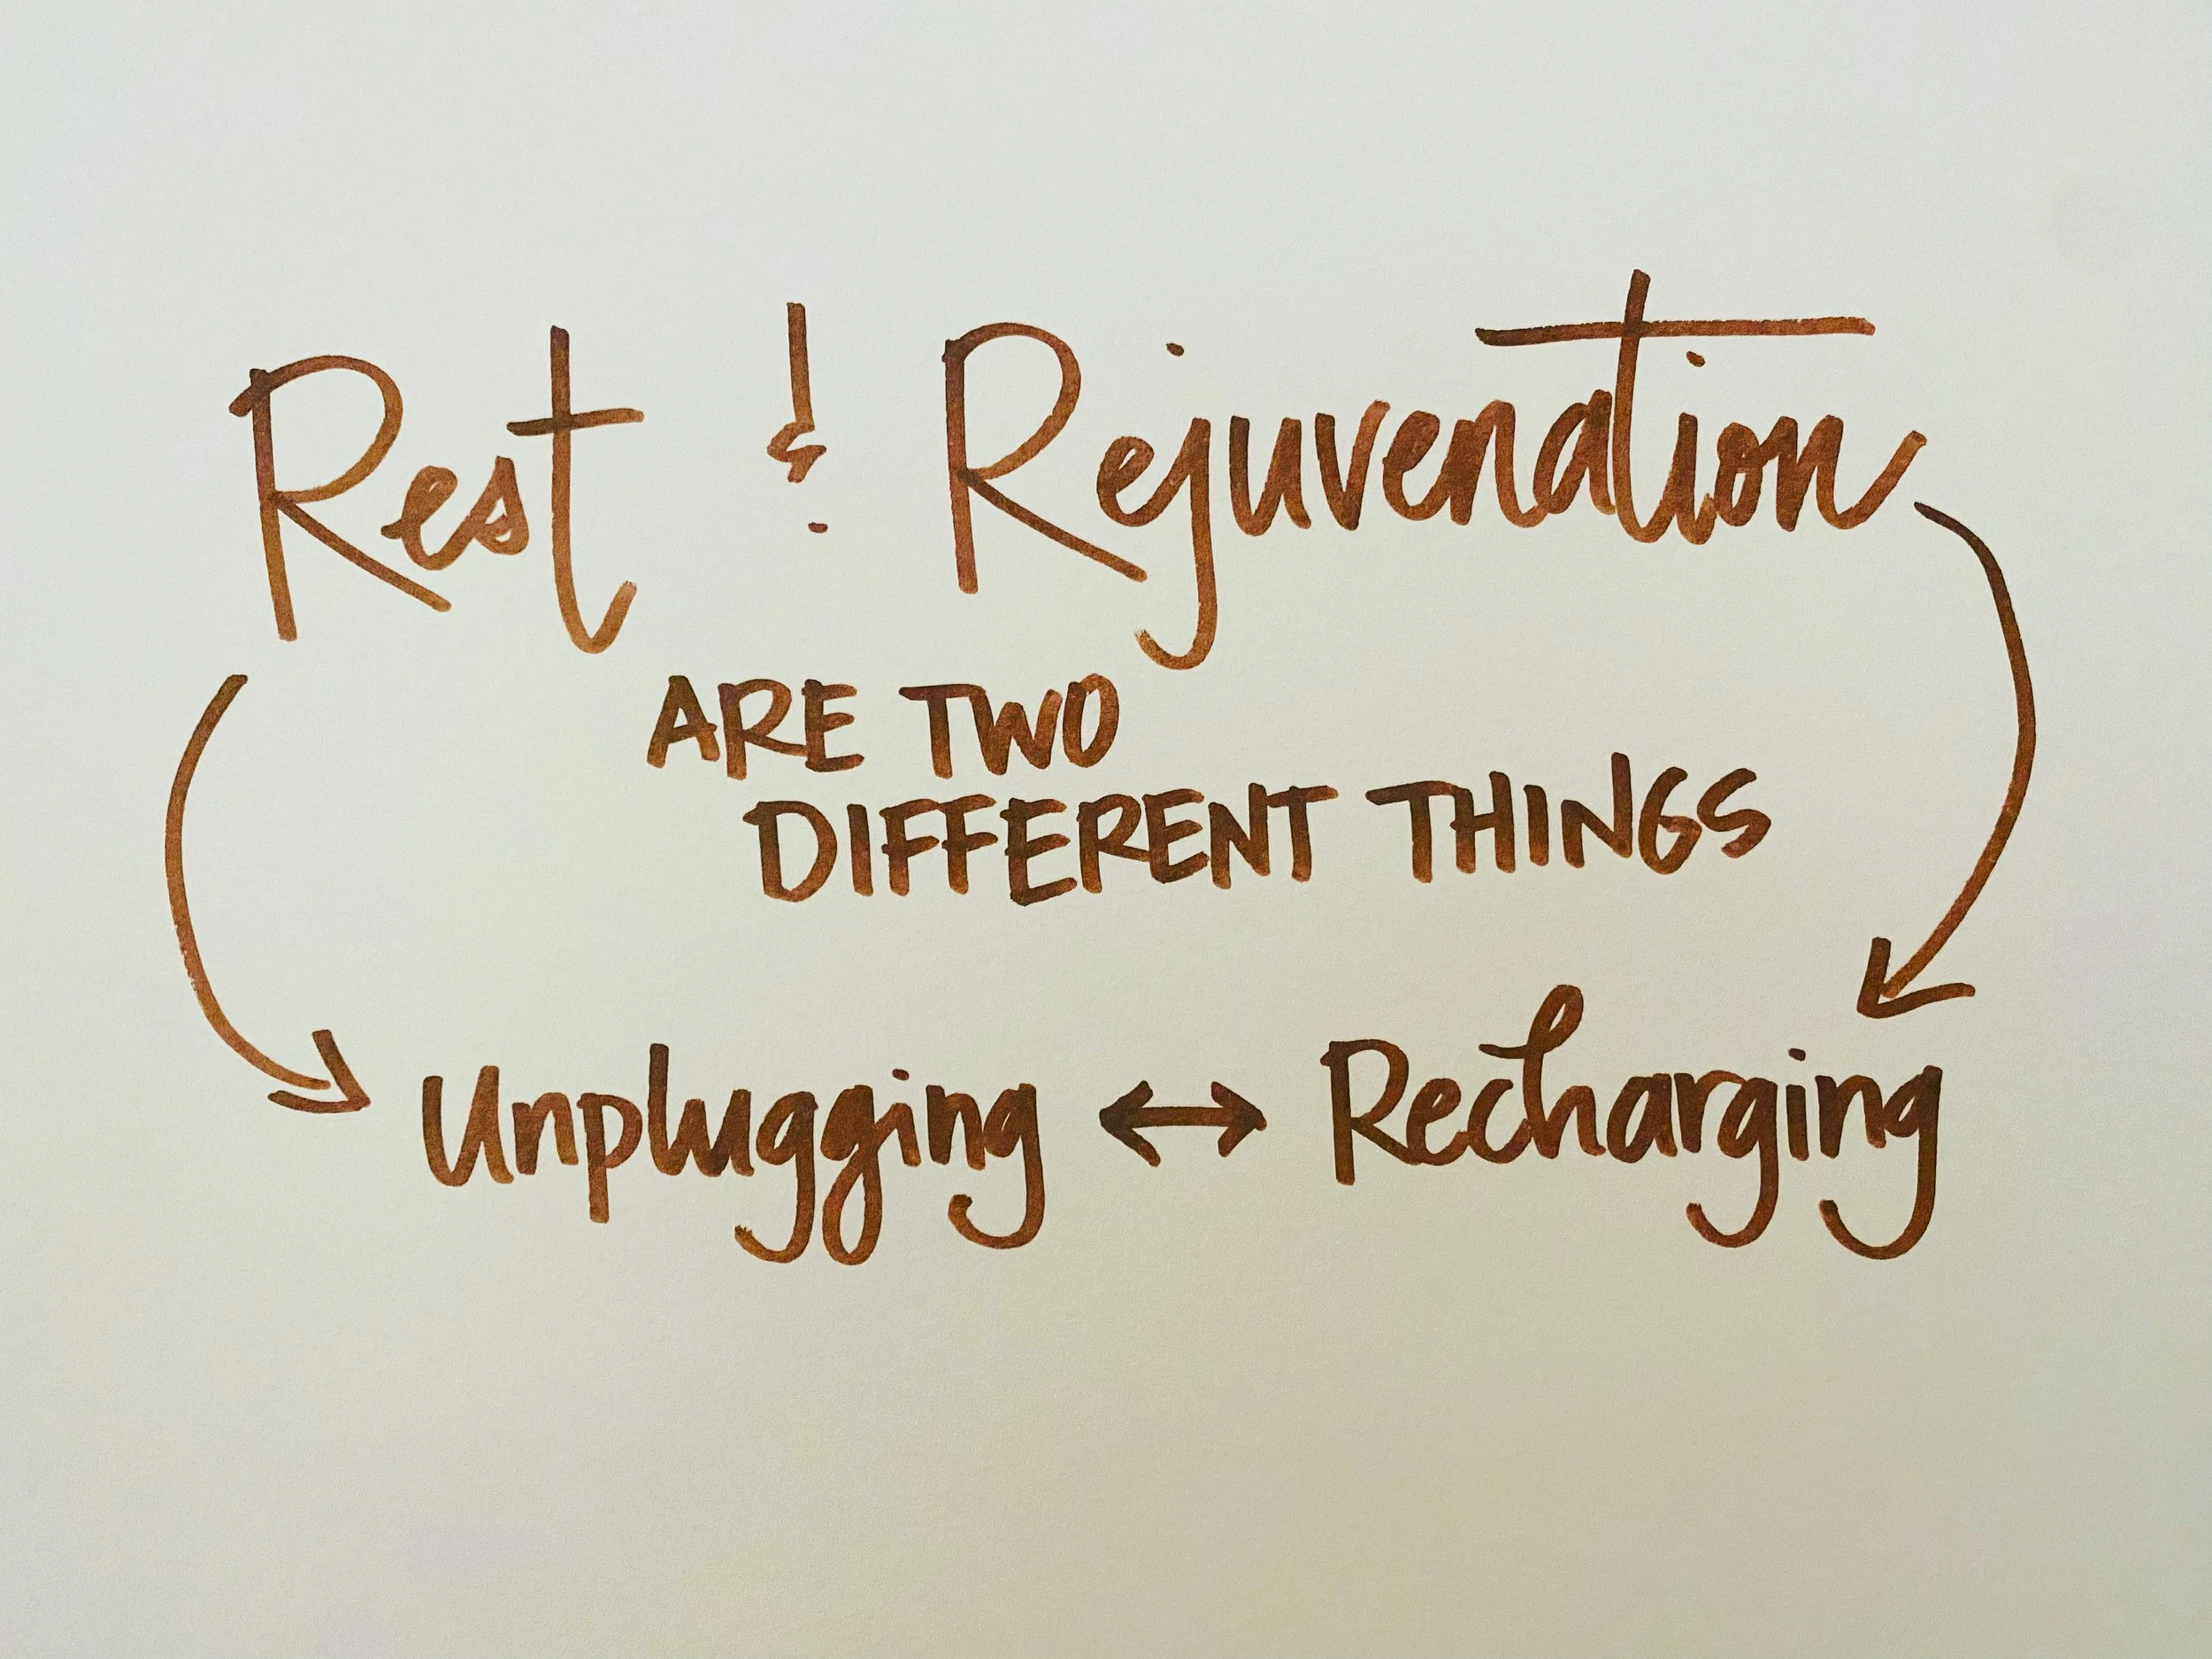 Rest & Rejuvenation
ARE TWO
DIFFERENT THINGS
Unplugging ↔ Recharging